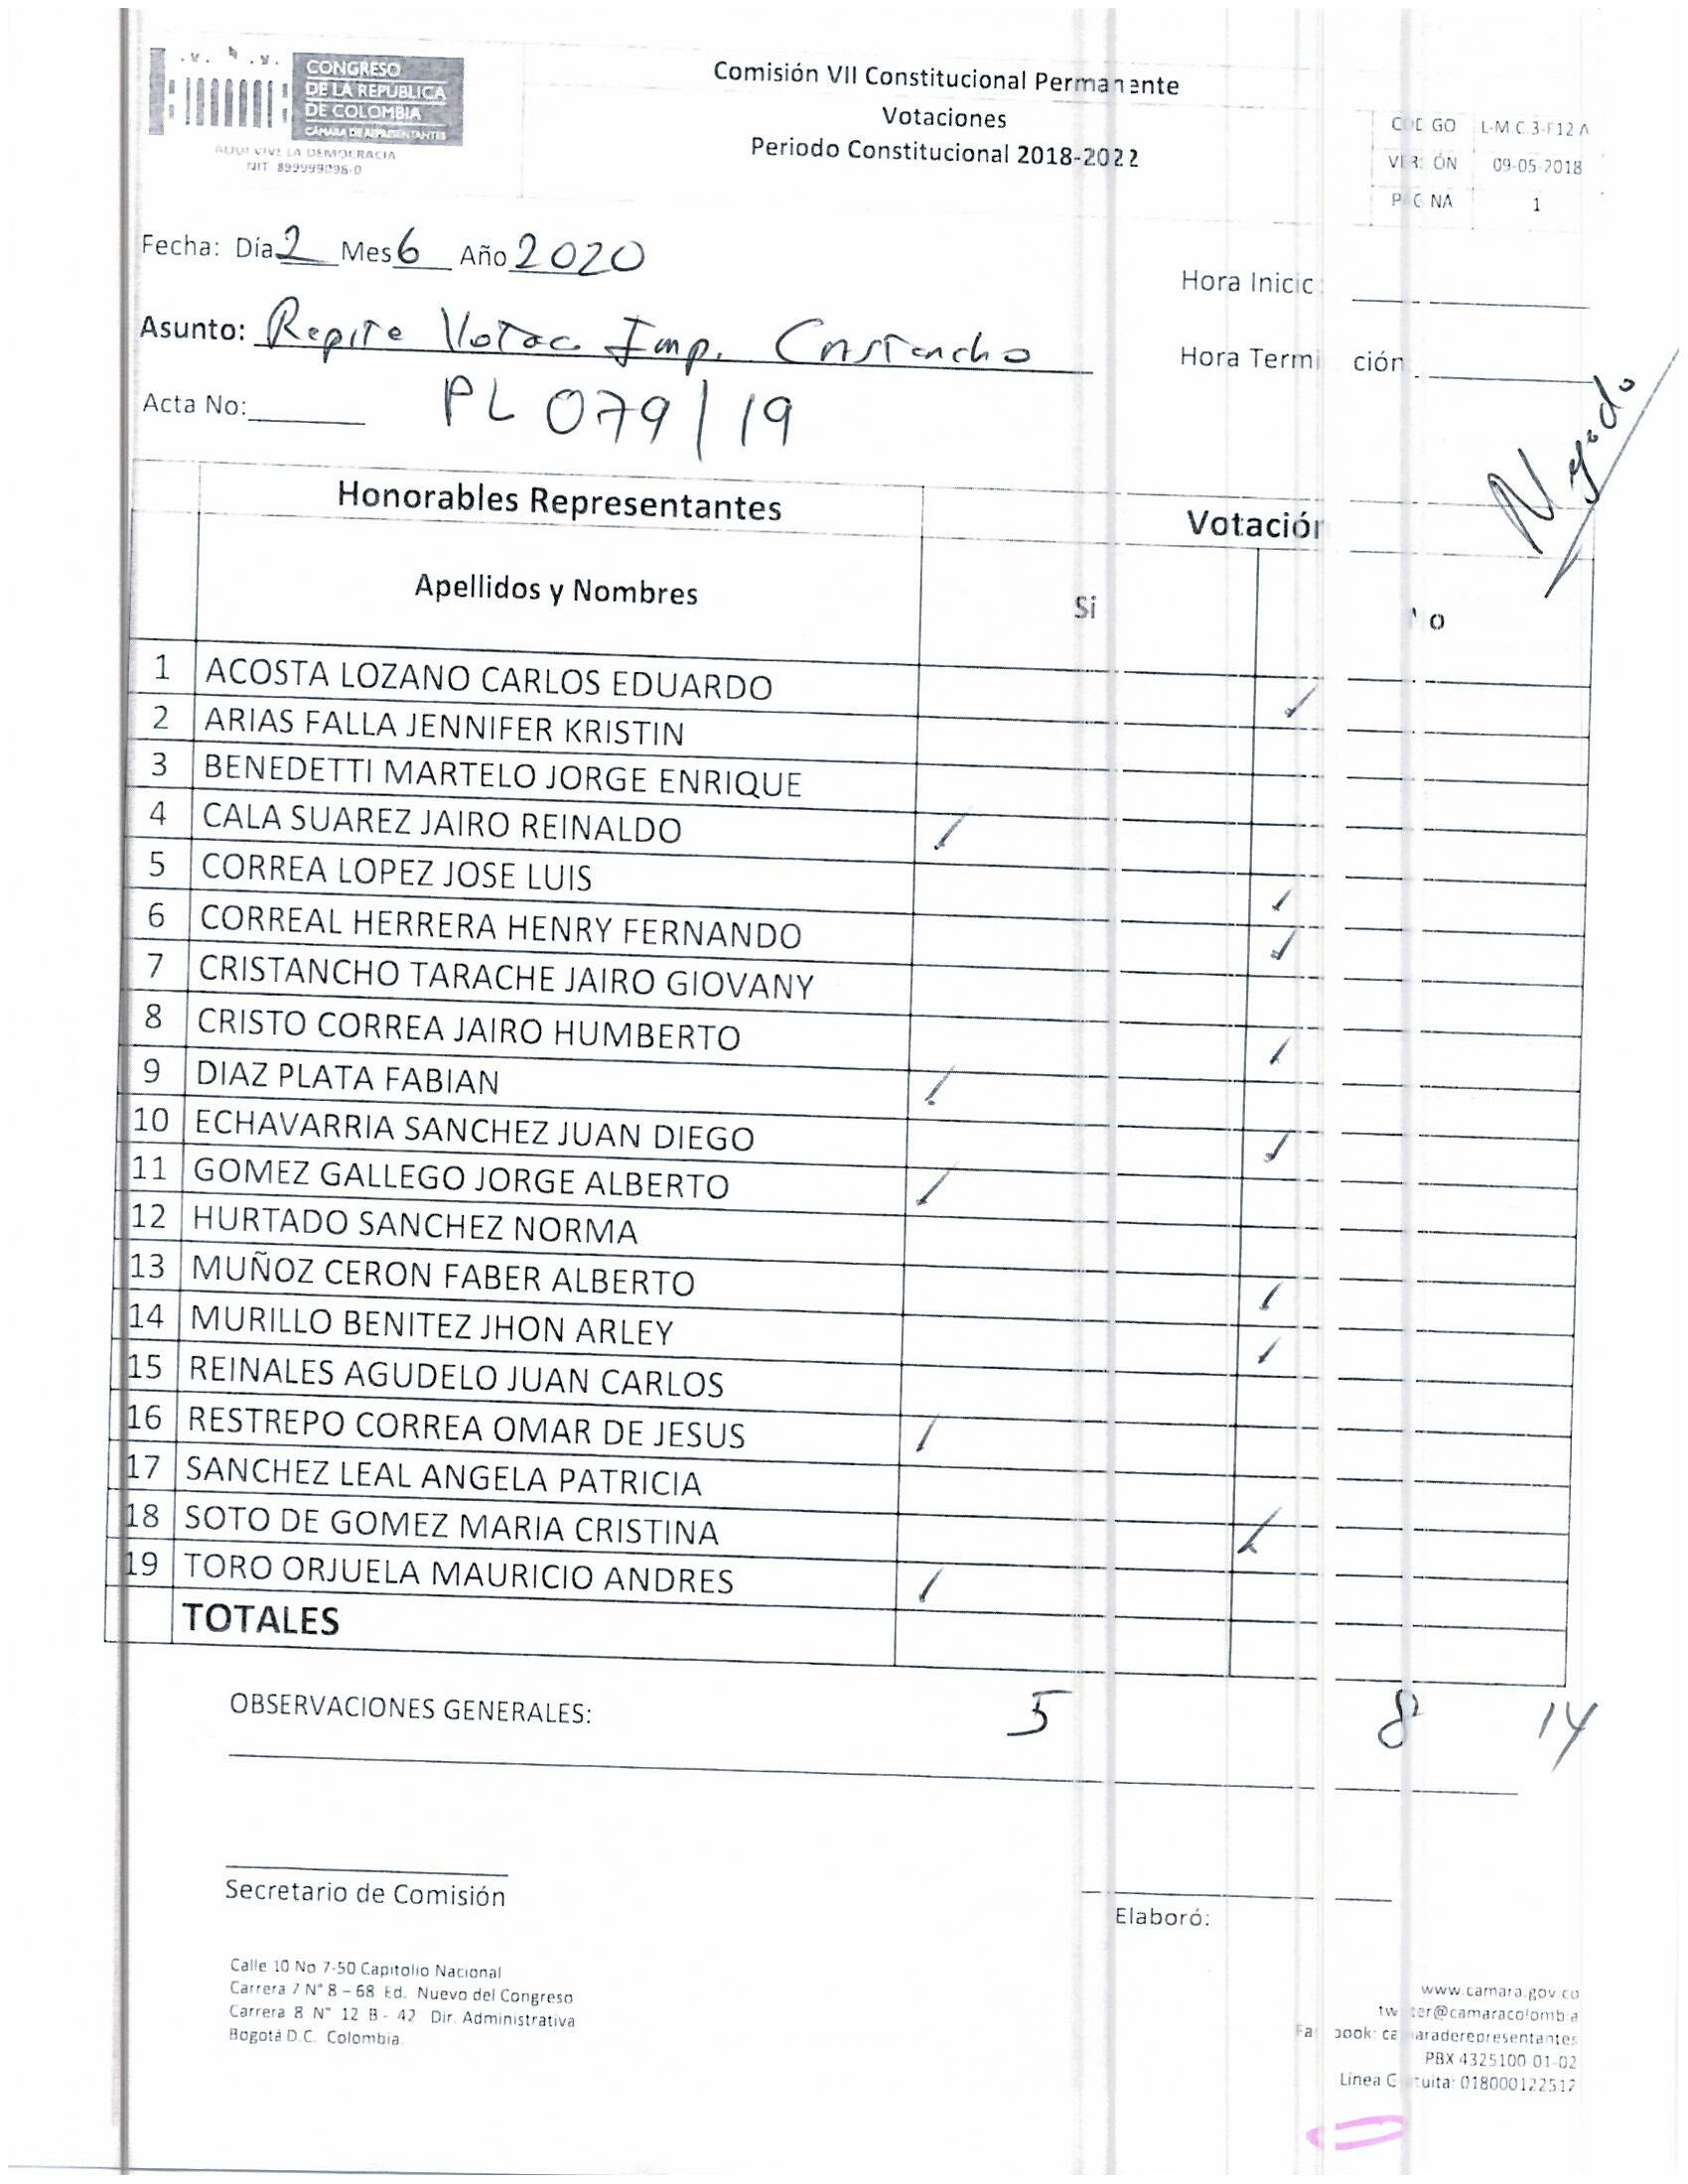 CONGRESO
DE LA REPÚBLICA
DE COLOMBIA
CÁMARA DE REPRESENTANTES
AQUÍ VIVE LA DEMOCRACIA
NIT 899999098-0
Comisión VII Constitucional Permanente
Votaciones
Periodo Constitucional 2018-2022
CODIGO L-M.C.3-F12 A
VERSIÓN 09-05-2018
PAGINA 1
Fecha: Día 2 Mes 6 Año 2020
Hora Inicio:
Asunto: Repite Votac Imp. Cristancho
Hora Terminación
Acta No: PL 079/19
Negado
Honorables Representantes Votación
Apellidos y Nombres Si No
1 ACOSTA LOZANO CARLOS EDUARDO ✓
2 ARIAS FALLA JENNIFER KRISTIN
3 BENEDETTI MARTELO JORGE ENRIQUE
4 CALA SUAREZ JAIRO REINALDO ✓
5 CORREA LOPEZ JOSE LUIS ✓
6 CORREAL HERRERA HENRY FERNANDO ✓
7 CRISTANCHO TARACHE JAIRO GIOVANY
8 CRISTO CORREA JAIRO HUMBERTO ✓
9 DIAZ PLATA FABIAN ✓
10 ECHAVARRIA SANCHEZ JUAN DIEGO ✓
11 GOMEZ GALLEGO JORGE ALBERTO ✓
12 HURTADO SANCHEZ NORMA
13 MUÑOZ CERON FABER ALBERTO ✓
14 MURILLO BENITEZ JHON ARLEY ✓
15 REINALES AGUDELO JUAN CARLOS
16 RESTREPO CORREA OMAR DE JESUS ✓
17 SANCHEZ LEAL ANGELA PATRICIA
18 SOTO DE GOMEZ MARIA CRISTINA ✓
19 TORO ORJUELA MAURICIO ANDRES ✓
TOTALES
OBSERVACIONES GENERALES: 5 8 14
Secretario de Comisión
Elaboró:
Calle 10 No 7-50 Capitolio Nacional
Carrera 7 N° 8 – 68 Ed. Nuevo del Congreso
Carrera 8 N° 12 B - 42 Dir. Administrativa
Bogotá D.C. Colombia.
www.camara.gov.co
twitter@camaracolombia
Facebook: camaraderepresentantes
PBX 4325100-01-02
Línea Gratuita: 018000122512